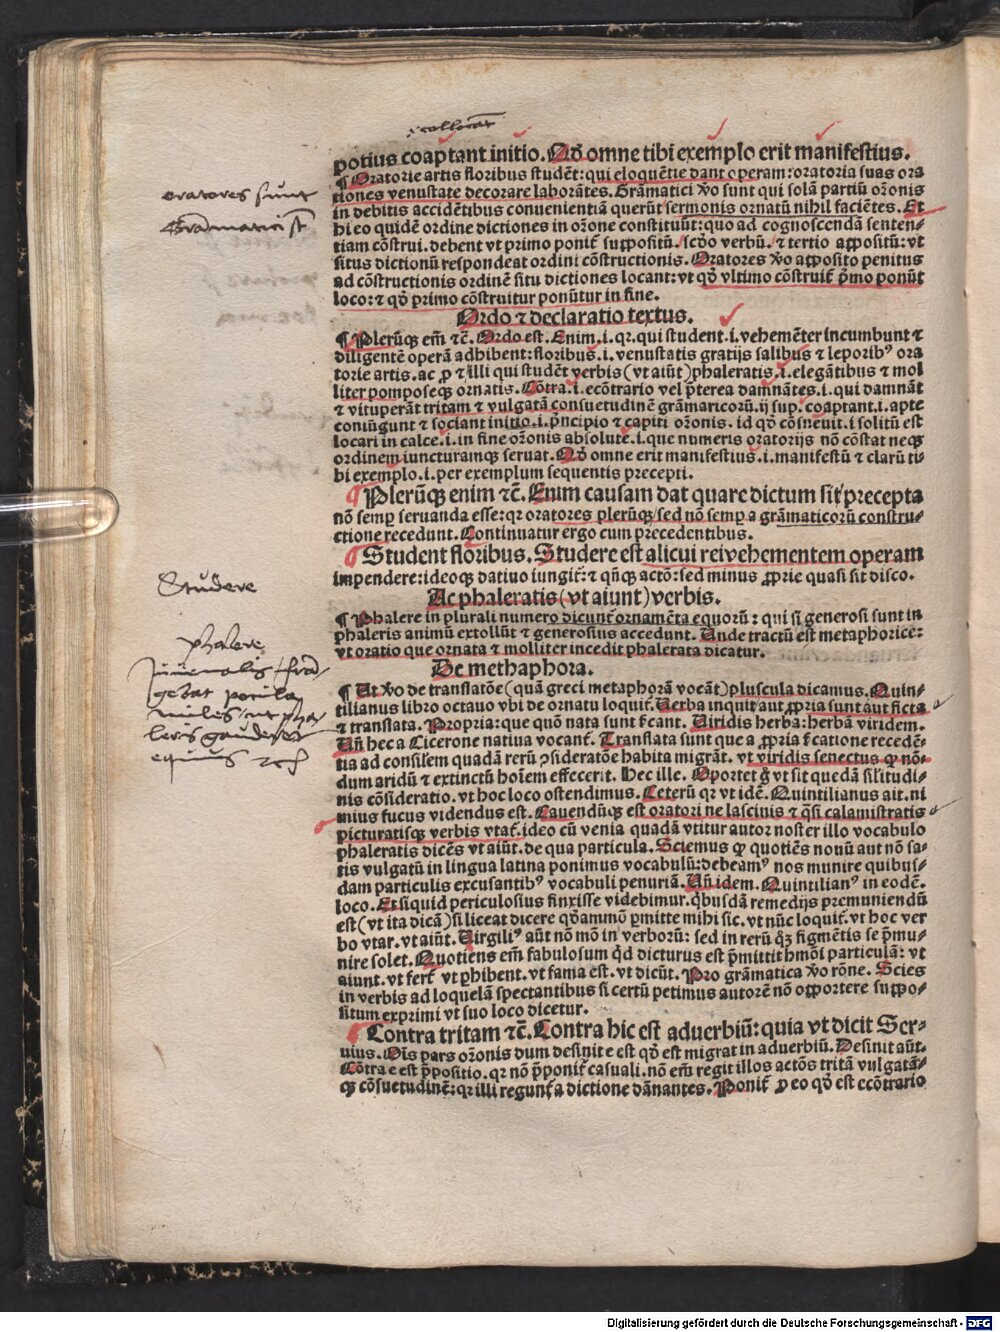 potius coaptant initio. Qđ omne tibi exemplo erit manifestius.
¶ Oratorie artis floribus studẽt: qui eloquẽtie dant operam: oratoria suas ora
tiones venustate decorare laborãtes. Grãmatici ꝟo sunt qui solã partiũ oꝛonis
in debitis accidẽtibus conuenientiã querũt sermonis ornatũ nihil faciẽtes. Et
hi eo quidẽ ordine dictiones in oꝛone constituũt: quo ad cognoscendã senten⸗
tiam cõstrui. debent vt primo poniť suppositũ. scđo verbũ. ⁊ tertio appositũ: vt
situs dictionũ respondeat ordini cõstructionis. Oratores ꝟo apposito penitus
ad cõstructionis ordinẽ situ dictiones locant: vt qđ vltimo cõstruiť p̃mo ponũt
loco: ⁊ qđ primo cõstruitur ponũtur in fine.
Ordo ⁊ declaratio textus.
¶ Plerũqꝫ em̃ ⁊c̃. Ordo est. Enim .i. qꝛ. qui student .i. vehemẽter incumbunt ⁊
diligentẽ operã adhibent: floribus .i. venustatis gratijs salibus ⁊ leporibꝰ ora
torie artis. ac ꝓ ⁊ illi qui studẽt verbis (vt aiũt) phaleratis .i. elegãtibus ⁊ mol
liter pomposeqꝫ ornatis. Cõtra .i. ecõtrario vel p̃terea damnãtes .i. qui damnãt
⁊ vituperãt tritam ⁊ vulgatã consuetudinẽ grãmaricorũ. ij sup. coaptant .i. apte
coniũgunt ⁊ sociant initio .i. p̃ncipio ⁊ capiti oꝛonis. id qđ cõsueuit .i solitũ est
locari in calce .i. in fine oꝛonis absolute .i. que numeris oratorijs nõ cõstat neqꝫ
ordinem iuncturamqꝫ seruat. Qđ omne erit manifestius .i. manifestũ ⁊ clarũ ti⸗
bi exemplo .i. per exemplum sequentis precepti.
¶ Plerũqꝫ enim ⁊c̃. Enim causam dat quare dictum sit precepta
nõ semp̱ seruanda esse: qꝛ oratores plerũqꝫ/ sed nõ semp̱ a grãmaticorũ constru⸗
ctione recedunt. Continuatur ergo cum precedentibus.
¶ Student floribus. Studere est alicui rei vehementem operam
impendere: ideoqꝫ datiuo iungiť: ⁊ qñqꝫ actõ: sed minus ꝓprie quasi sit disco.
Ac phaleratis (vt aiunt) verbis.
¶ Phalere in plurali numero dicunť ornamẽta equorũ: qui si generosi sunt in
phaleris animũ extollũt ⁊ generosius accedunt. Unde tractũ est metaphorice:
vt oratio que ornata ⁊ molliter incedit phalerata dicatur.
De methaphora.
¶ At ꝟo de translatõe (quã greci metaphorã vocãt) pluscula dicamus. Quin⸗
tilianus libro octauo vbi de ornatu loquiť. Uerba inquit aut ꝓpria sunt aut ficta
⁊ translata. Propria: que quõ nata sunt ẜcant. Uiridis herba: herbã viridem.
Uñ hec a Cicerone natiua vocanť. Translata sunt que a ꝓpria ẜcatione recedẽ⸗
tia ad consilem quadã rerũ ꝯsideratõe habita migrãt. vt viridis senectus qꝫ nõ⸗
dum aridũ ⁊ extinctũ hoĩem effecerit. Hec ille. Oportet g̃ vt sit quedã sil'itudi⸗
nis cõsideratio. vt hoc loco ostendimus. Ceterũ qꝛ vt idẽ. Quintilianus ait. ni
mius fucus vidендus est. Cauendũqꝫ est oratori ne lasciuis ⁊ q̃si calamistratis
picturatisqꝫ verbis vtať. ideo cũ venia quadã vtitur autor noster illo vocabulo
phaleratis dicẽs vt aiũt. de qua particula. Sciemus qꝫ quotiẽs nouũ aut nõ sa⸗
tis vulgatũ in lingua latina ponimus vocabulũ: debeamꝰ nos munire quibus⸗
dam particulis excusantibꝰ vocabuli penuriã. Uñ idem. Quintilianꝰ in eodẽ.
loco. Et si quid periculosius finxisse videbimur. qͥbusdã remedijs premuniendũ
est (vt ita dicã) si liceat dicere qđãmmõ p̱mitte mihi sic. vt nũc loquiť. vt hoc ver
bo vtar. vt aiũt. Uirgiliꝰ aũt nõ mõ in verborũ: sed in rerũ qͦꝫ figmẽtis se p̃mu⸗
nire solet. Quotiens em̃ fabulosum qͥd dicturus est p̃mittit hmõi particulã: vt
aiunt. vt ferť vt ꝓhibent. vt fama est. vt dicũt. Pro grãmatica ꝟo rõne. Scies
in verbis ad loquelã spectantibus si certũ petimus autorẽ nõ opportere suppo⸗
situm exprimi vt suo loco dicetur.
¶ Contra tritam ⁊c̃. Contra hic est aduerbiũ: quia vt dicit Ser⸗
uius. Ois pars oꝛonis dum desinit e est qđ est migrat in aduerbiũ. Desinit aũt.
Cõtra e est p̃positio. qꝛ nõ p̃poniť casuali. nõ em̃ regit illos actõs tritã vulgatã⸗
qꝫ cõsuetudinẽ: qꝛ illi regunť a dictione dãnantes. Poniť ꝓ eo qđ est ecõtrario
oratores sunt
Gram̃atici st̃
Studere
phalere
Juuenalis
miles
equus
Digitalisierung gefördert durch die Deutsche Forschungsgemeinschaft - DFG